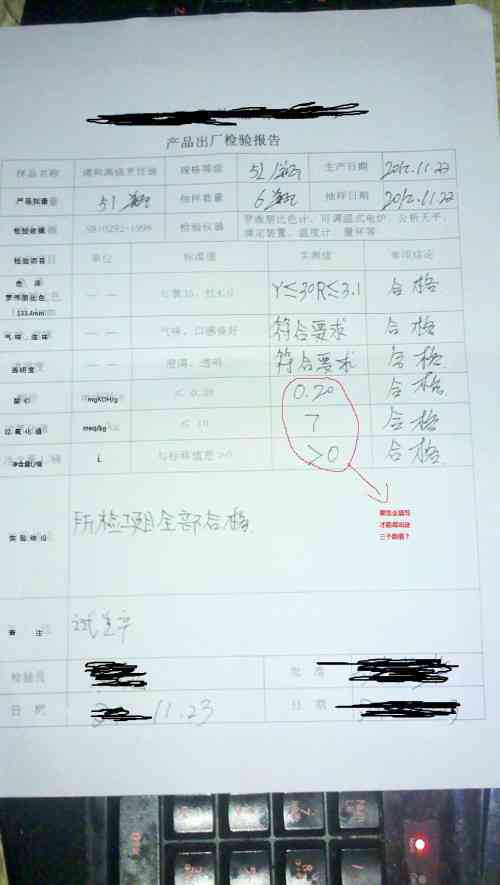 产品出厂检验报告
样品名称 调和高级烹饪油 规格等级 5L/ 生产日期 2012.11.22
产品批量 51 抽样数量 6 抽样日期 2012.11.22
检验依据 SB10292-1998 检验仪器 罗维朋比色计、可调温式电炉、分析天平、
滴定装置、温度计、量杯等
检验项目 单位 标准值 实测值 单项结论
色泽
罗维朋比色
133.4mm —— ≤黄35、红4.0 Y≤30R≤3.1 合格
气味、滋味 —— 气味、口感良好 符合要求 合格
透明度 —— 澄清、透明 符合要求 合格
酸价 mgKOH/g 0.20 合格
过氧化值 meq/kg ≤ 10 7 合格
净含量L/桶 L 与标称值差>0 >0 合格
要怎么填写
才能得出这
三个数值?
所检项目全部合格
备注 试生产
检验员 批准
日期 11.23 日期